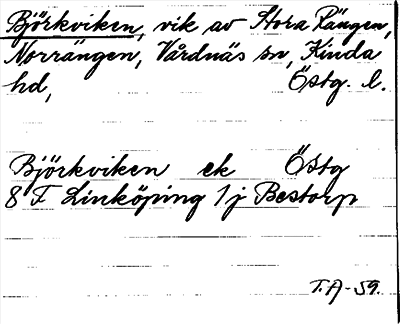 Björkviken, vik av Stora Rängen,
Norrängen, Vårdnäs sn, Kinda
hd, Östg. l.
Björkviken ek Östg
8 F Linköping 1 j Bestorp
T.A-59.